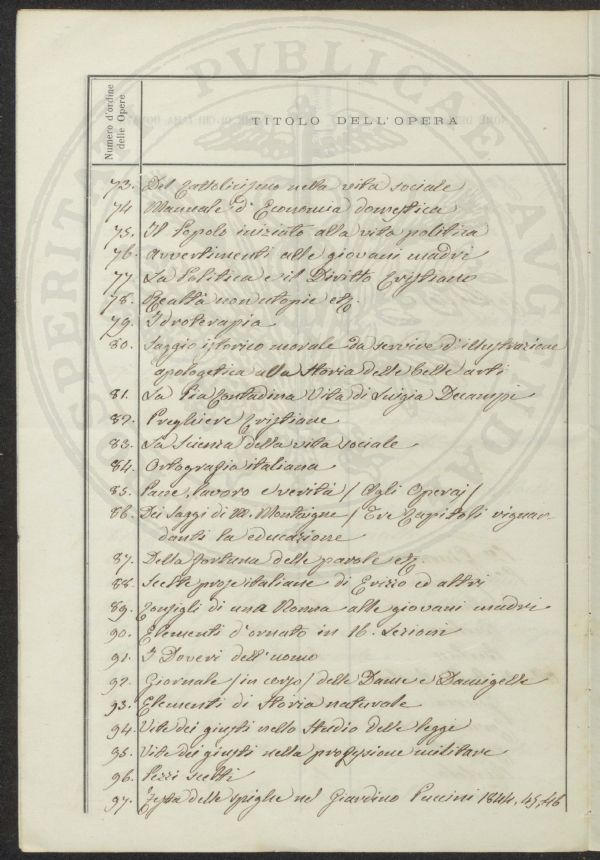 Numero d'ordine
delle Opere
TITOLO DELL'OPERA
73. Del Cattolicismo nella vita sociale
74 Manuale d'Economia domestica
75. Il Popolo iniziato alla vita politica
76. Avvertimenti alle giovani madri
77. La Politica e il Diritto Cristiano
78. Realtà non utopie etc.
79. Idroterapia
80. Saggio istorico morale da servire d'illustrazione
apologetica alla Storia delle belle arti
81. La Pia Contadina Vita di Luigia Decampi
82. Preghiere Cristiane
83. La Scienza della vita sociale
84. Ortografia italiana
85. Pane, lavoro e verità / Agli Operaj /
86. Dei Saggi di M. Montaigne / Tre Capitoli riguar-
danti la educazione
87. Della fortuna delle parole etc.
88. Scelte prose italiane di Erizzo ed altri
89. Consigli di una Nonna alle giovani madri
90. Elementi d'ornato in 16. Lezioni
91. I Doveri dell'uomo
92. Giornale / in corso / delle Dame e Damigelle
93. Elementi di Storia naturale
94. Vite dei giusti nello Studio delle leggi
95. Vite dei giusti nella professione militare
96. Pezzi scelti
97. Festa delle spighe nel Giardino Puccini 1844, 45, 46